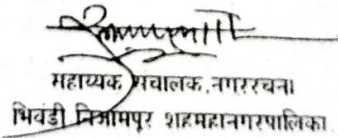 सहाय्यक संचालक, नगररचना
भिवंडी निजामपूर शहरमहानगरपालिका